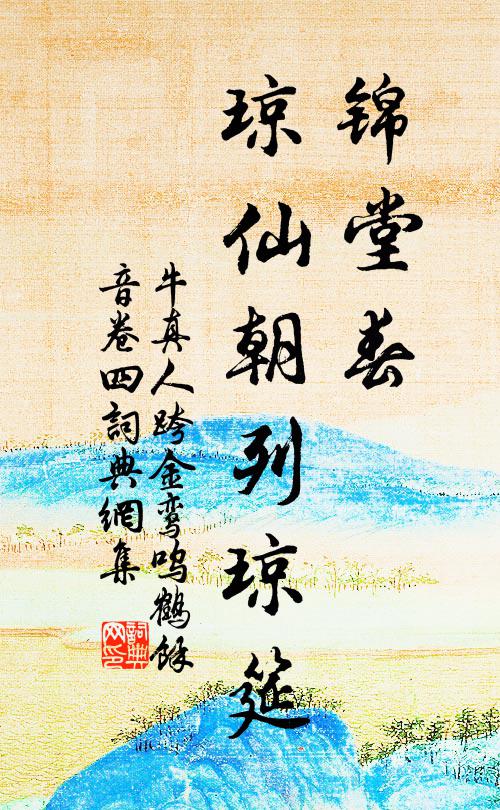 锦堂春
琼仙朝列琼筵
牛真人跨金鸾鸣鹤馀
音卷四詞典網集
詞典网印